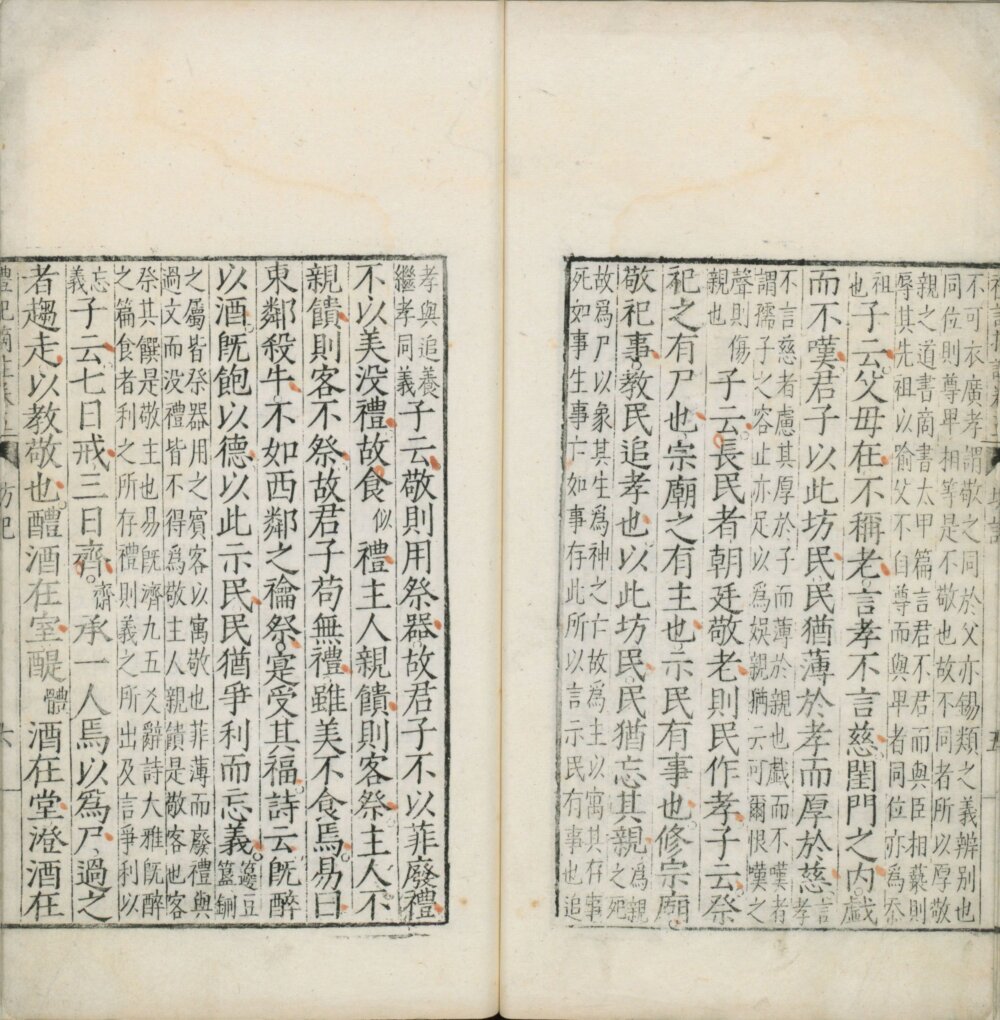 不可衣廣孝謂敬之同於父亦錫類之義辨别也
同位則尊卑相等是不敬也故不同者所以厚敬
親之道書商書太甲篇言君不君而與臣相褻則
辱其先祖以喻父不自尊而與卑者同位亦為忝
祖也子云父母在不稱老言孝不言慈閨門之内戲
而不嘆君子以此坊民民猶薄於孝而厚於慈言孝
不言慈者慮其厚於子而薄於親也戲而不嘆者
謂孺子之容止亦足以為娛親猶云可爾恨嘆之
聲則傷親也子云長民者朝廷敬老則民作孝子云祭
祀之有尸也宗廟之有主也示民有事也修宗廟
敬祀事教民追孝也以此坊民民猶忘其親為親之死
故爲尸以象其生爲神之亡故爲主以寓其存事
死如事生事亡如事存此所以言示民有事也追
孝與追養繼孝同義子云敬則用祭器故君子不以菲廢禮
不以美没禮故食似禮主人親饋則客祭主人不
親饋則客不祭故君子苟無禮雖美不食焉易曰
東鄰殺牛不如西鄰之禴祭寔受其福詩云既醉
以酒既飽以德以此示民民猶爭利而忘義籩豆簠鉶
之屬皆祭器用之賓客以寓敬也菲薄而廢禮與
過文而没禮皆不得爲敬主人親饋是敬客也客
祭其饌是敬主也易既濟九五爻辭詩大雅既醉
之篇食者利之所存禮則義之所出及言爭利以
忘義子云七日戒三日齊齋承一人焉以爲尸過之
者趨走以教敬也醴酒在室醍體酒在堂澄酒在
禮記摘註卷之上 坊記 六